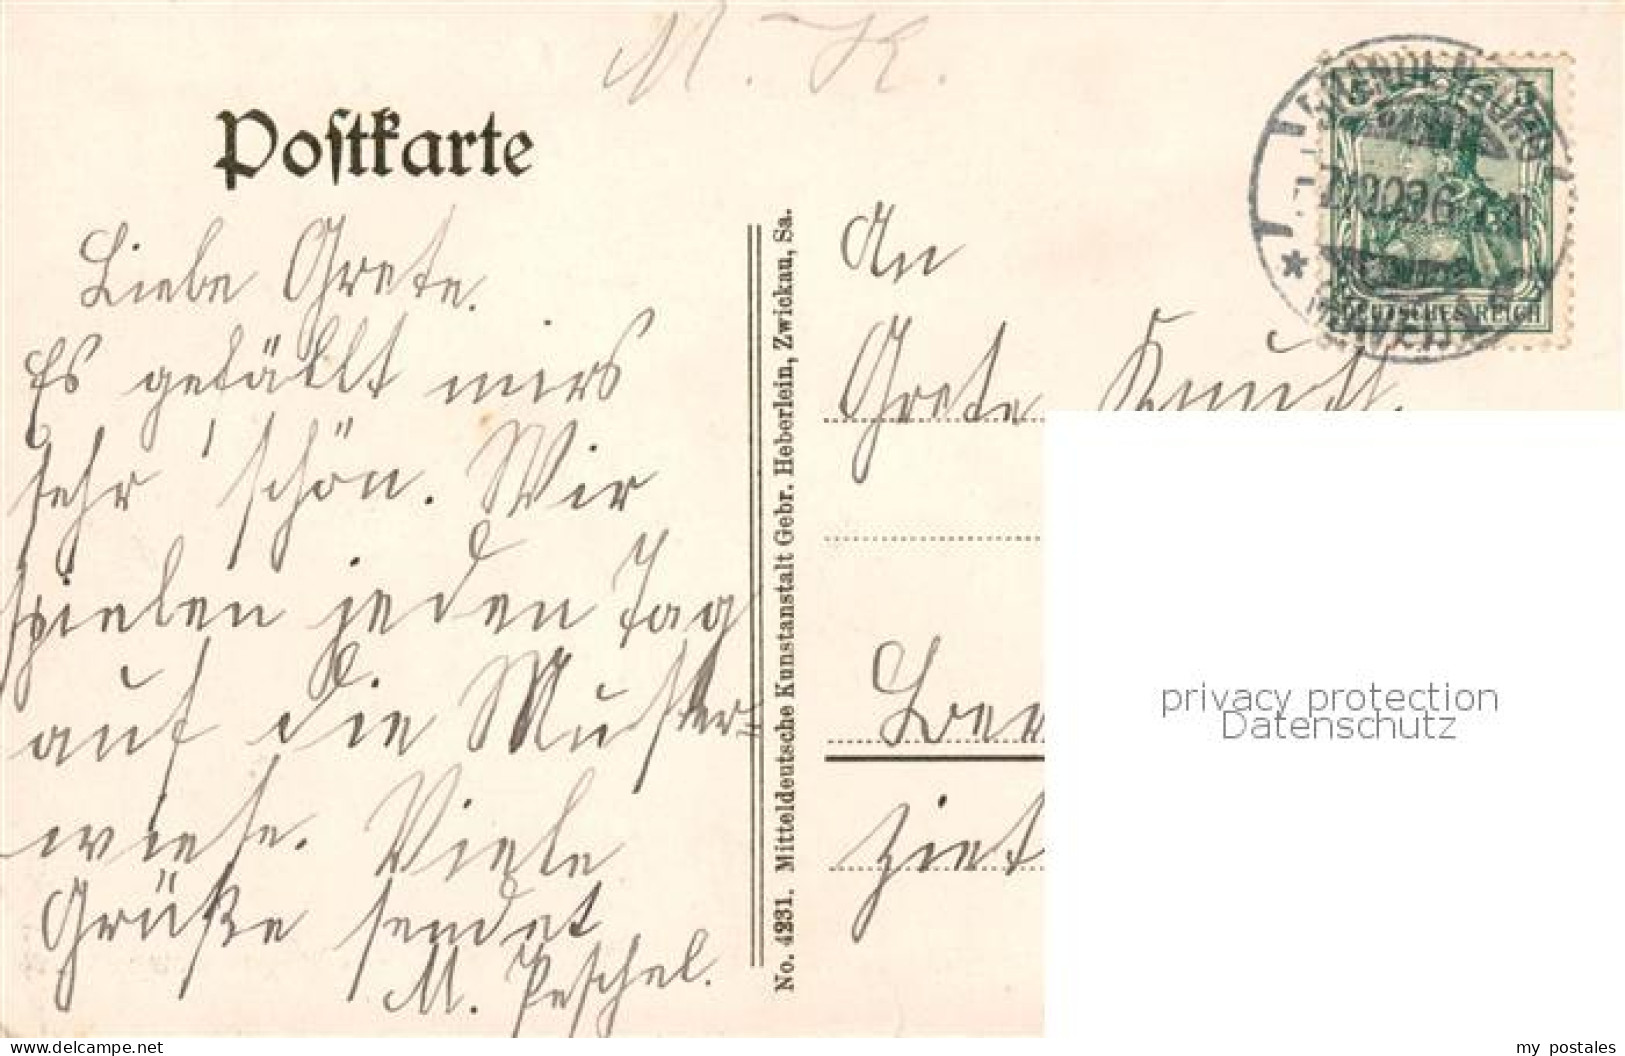 M. K.
Postkarte
Liebe Grete.
Es gefällt mirs
sehr schön. Wir
spielen jeden Tag
auf die Muster-
wiese. Viele
Grüße sendet
M. Peschel.
No. 4231. Mitteldeutsche Kunstanstalt Gebr. Heberlein, Zwickau, Sa.
5
DEUTSCHES REICH
An
Grete
privacy protection
Datenschutz
www.delcampe.net
my_postales